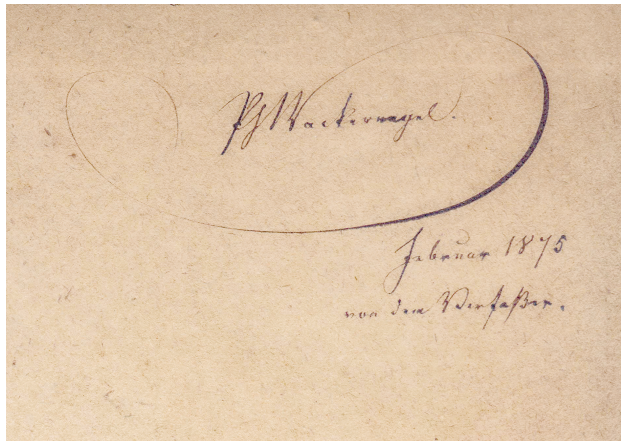 Ph Wackernagel.
Februar 1875
von dem Verfaßer.